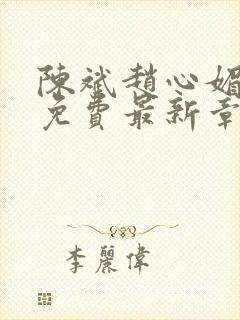 陳斌趙心媚
免費最新章
李麗偉